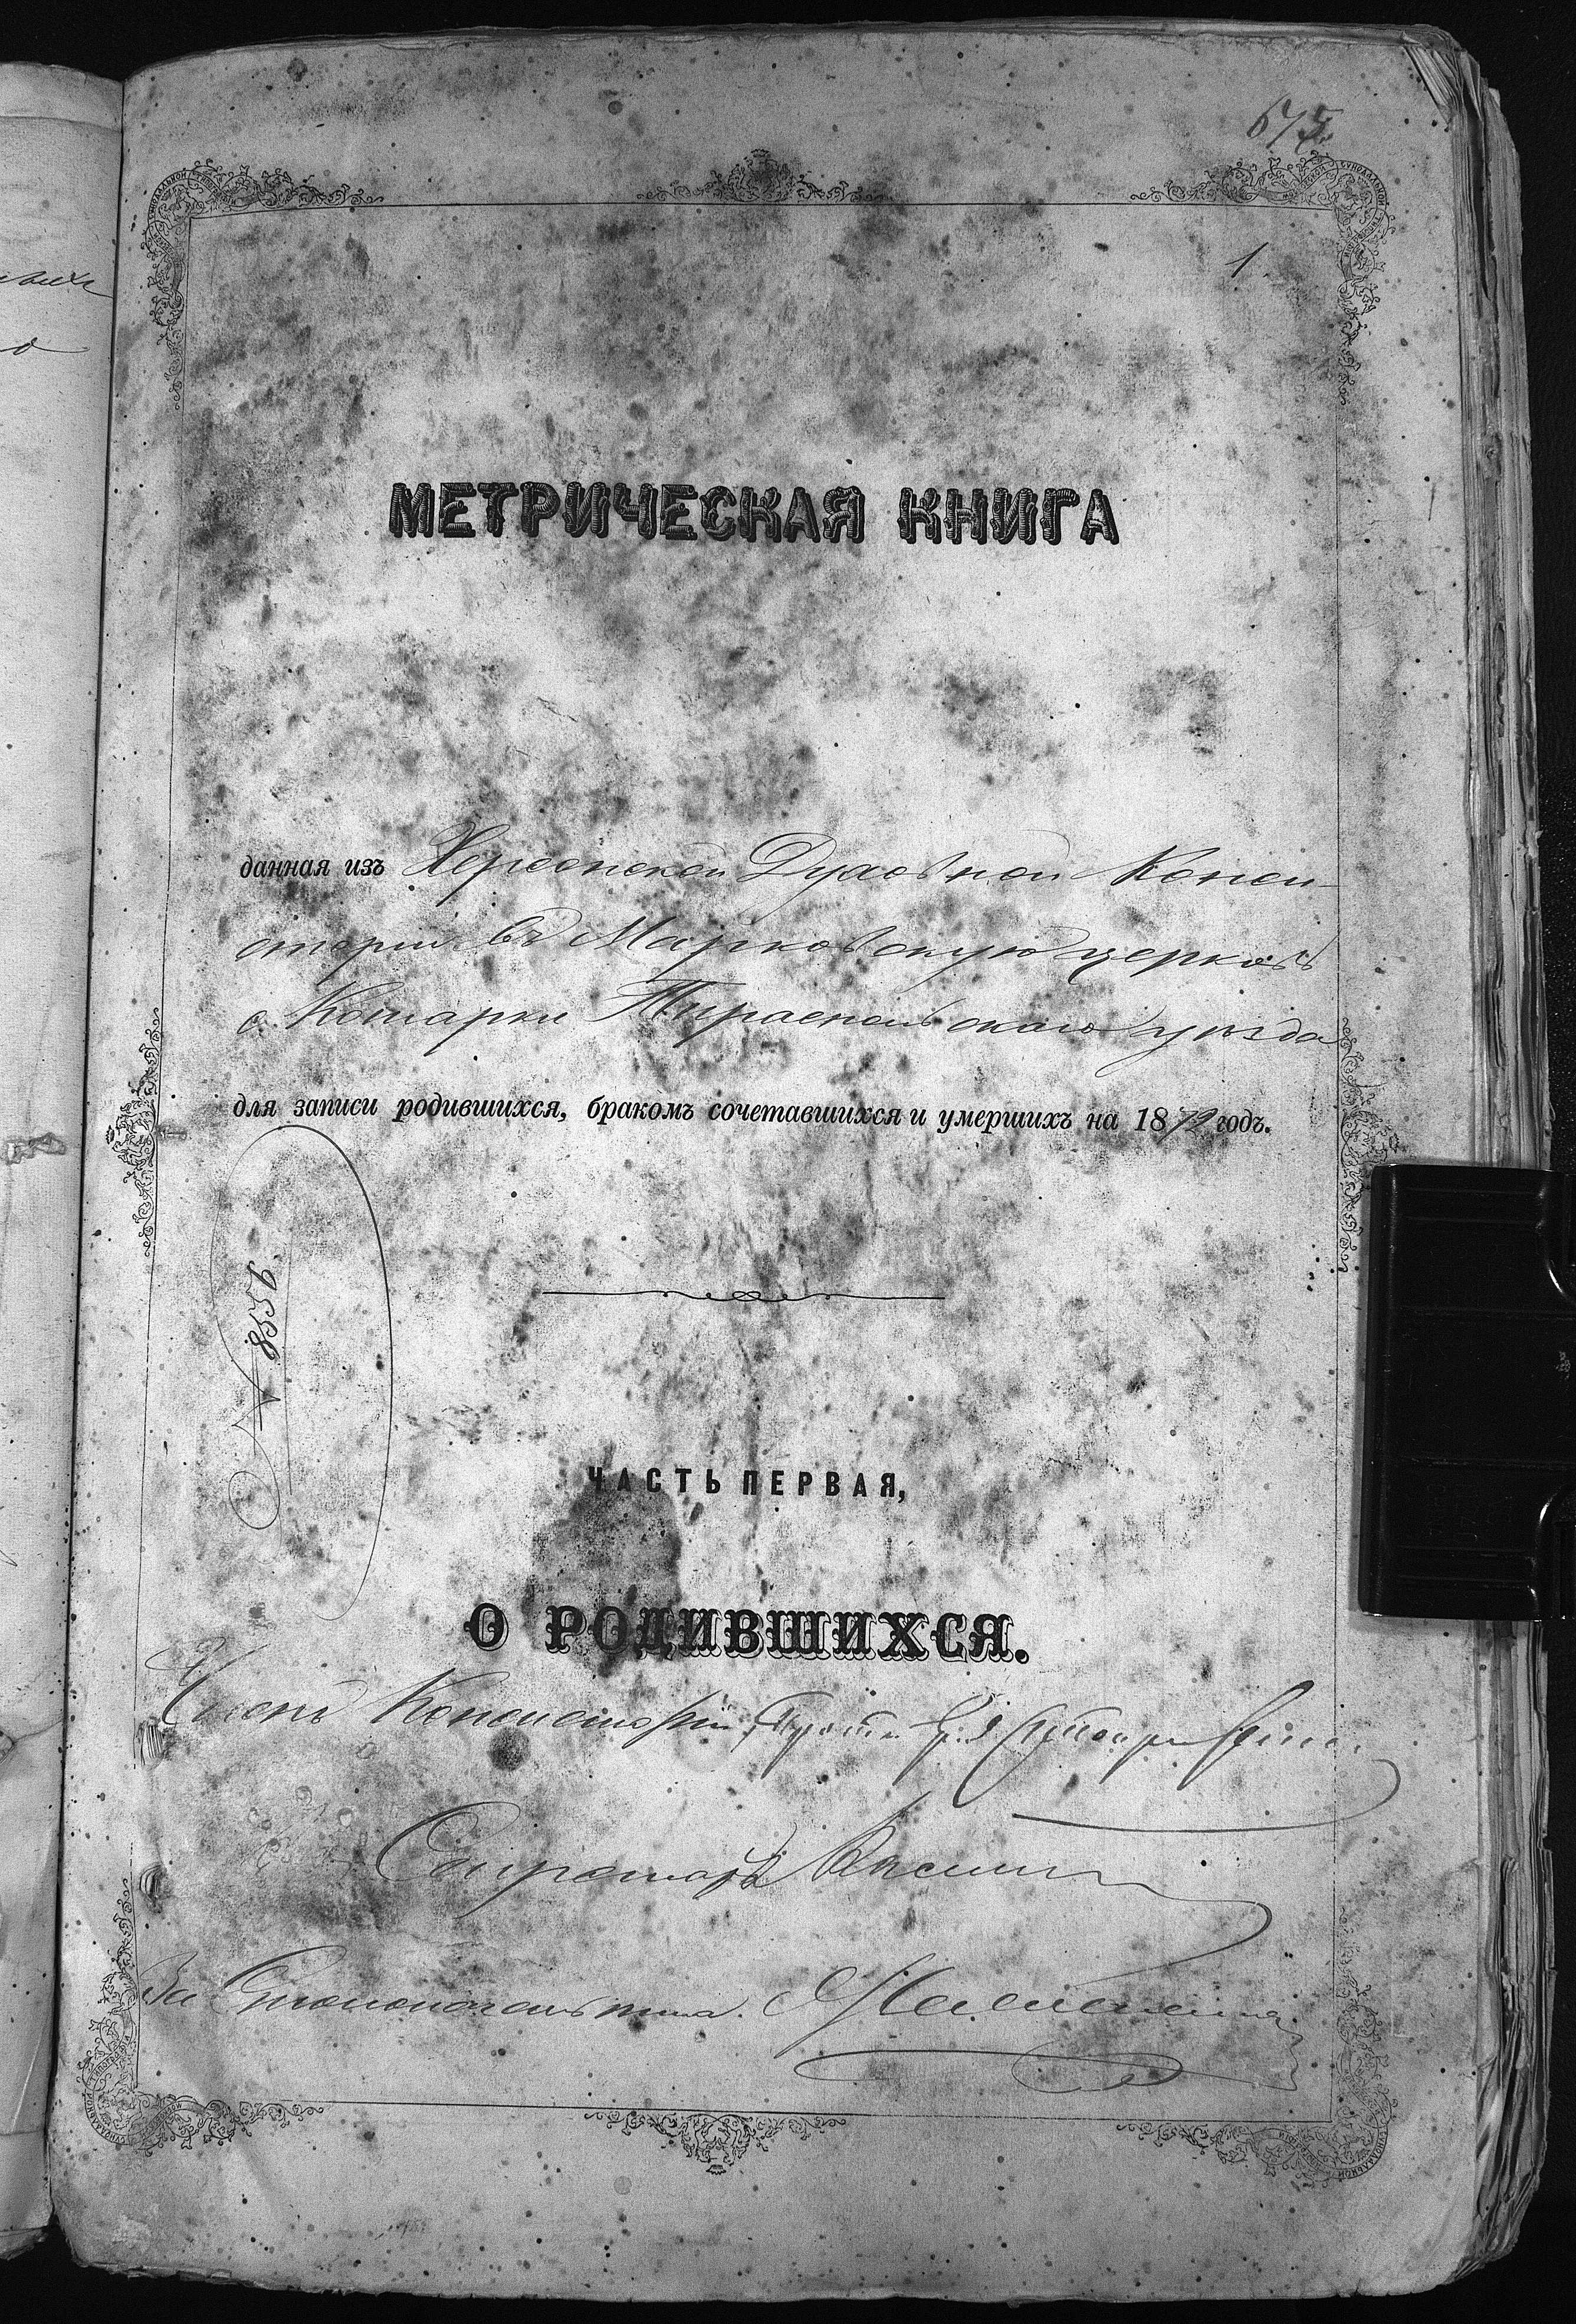 675
1
МЕТРИЧЕСКАЯ КНИГА
данная изъ Херсонской Духовной Конси-
сторіи въ Марковскую церковь
с. Котарки Тираспольскаго уѣзда
для записи родившихся, бракомъ сочетавшихся и умершихъ на 1872 годъ.
N 8556
ЧАСТЬ ПЕРВАЯ,
О РОДИВШИХСЯ.
Членъ Консисторіи
Секретарь
За Столоначальника